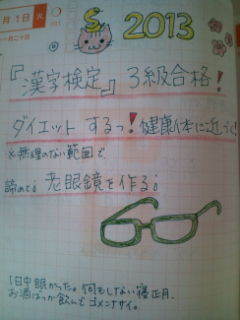 月1日 火
2013
『漢字検定』3級合格!
ダイエットするっ!健康体に近づく!
※無理のない範囲で
諦めて。老眼鏡を作る。
1日中眠かった。何もしない寝正月。
お酒ばっか飲んでゴメンナサイ。